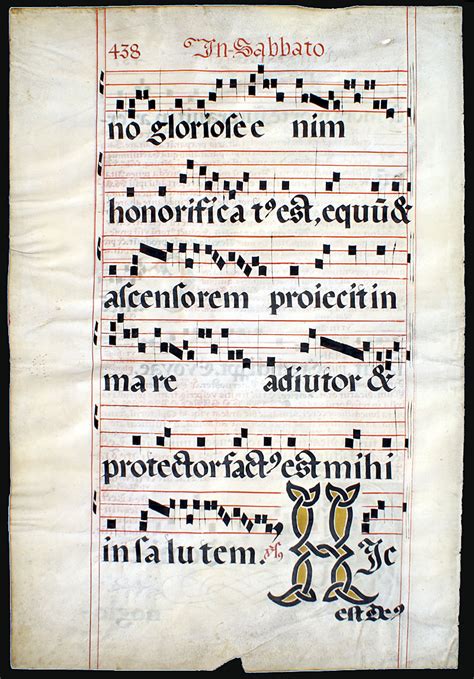 438 In Sabbato
no gloriose e nim
honorifica tꝰ est, equũ &
ascensorem proiecit in
ma re adiutor &
protector factꝰ est mihi
in sa lu tem. ℣.
H Ic
est Deꝰ